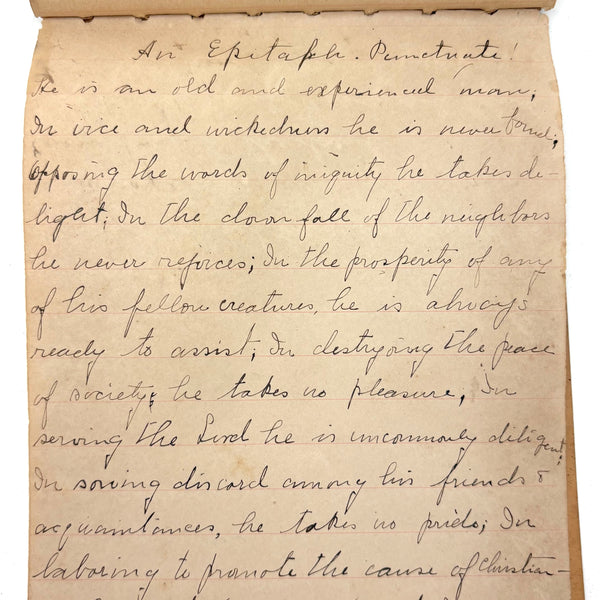 An Epitaph. Punctuate!
He is an old and experienced man;
In vice and wickedness he is never found;
Opposing the words of iniquity he takes de-
light; In the down fall of the neighbors
he never rejoices; In the prosperity of any
of his fellow creatures, he is always
ready to assist; In destroying the peace
of society; he takes no pleasure, In
serving the Lord he is uncommonly diligent;
In sowing discord among his friends &
acquaintances, he takes no pride; In
laboring to promote the cause of Christian-